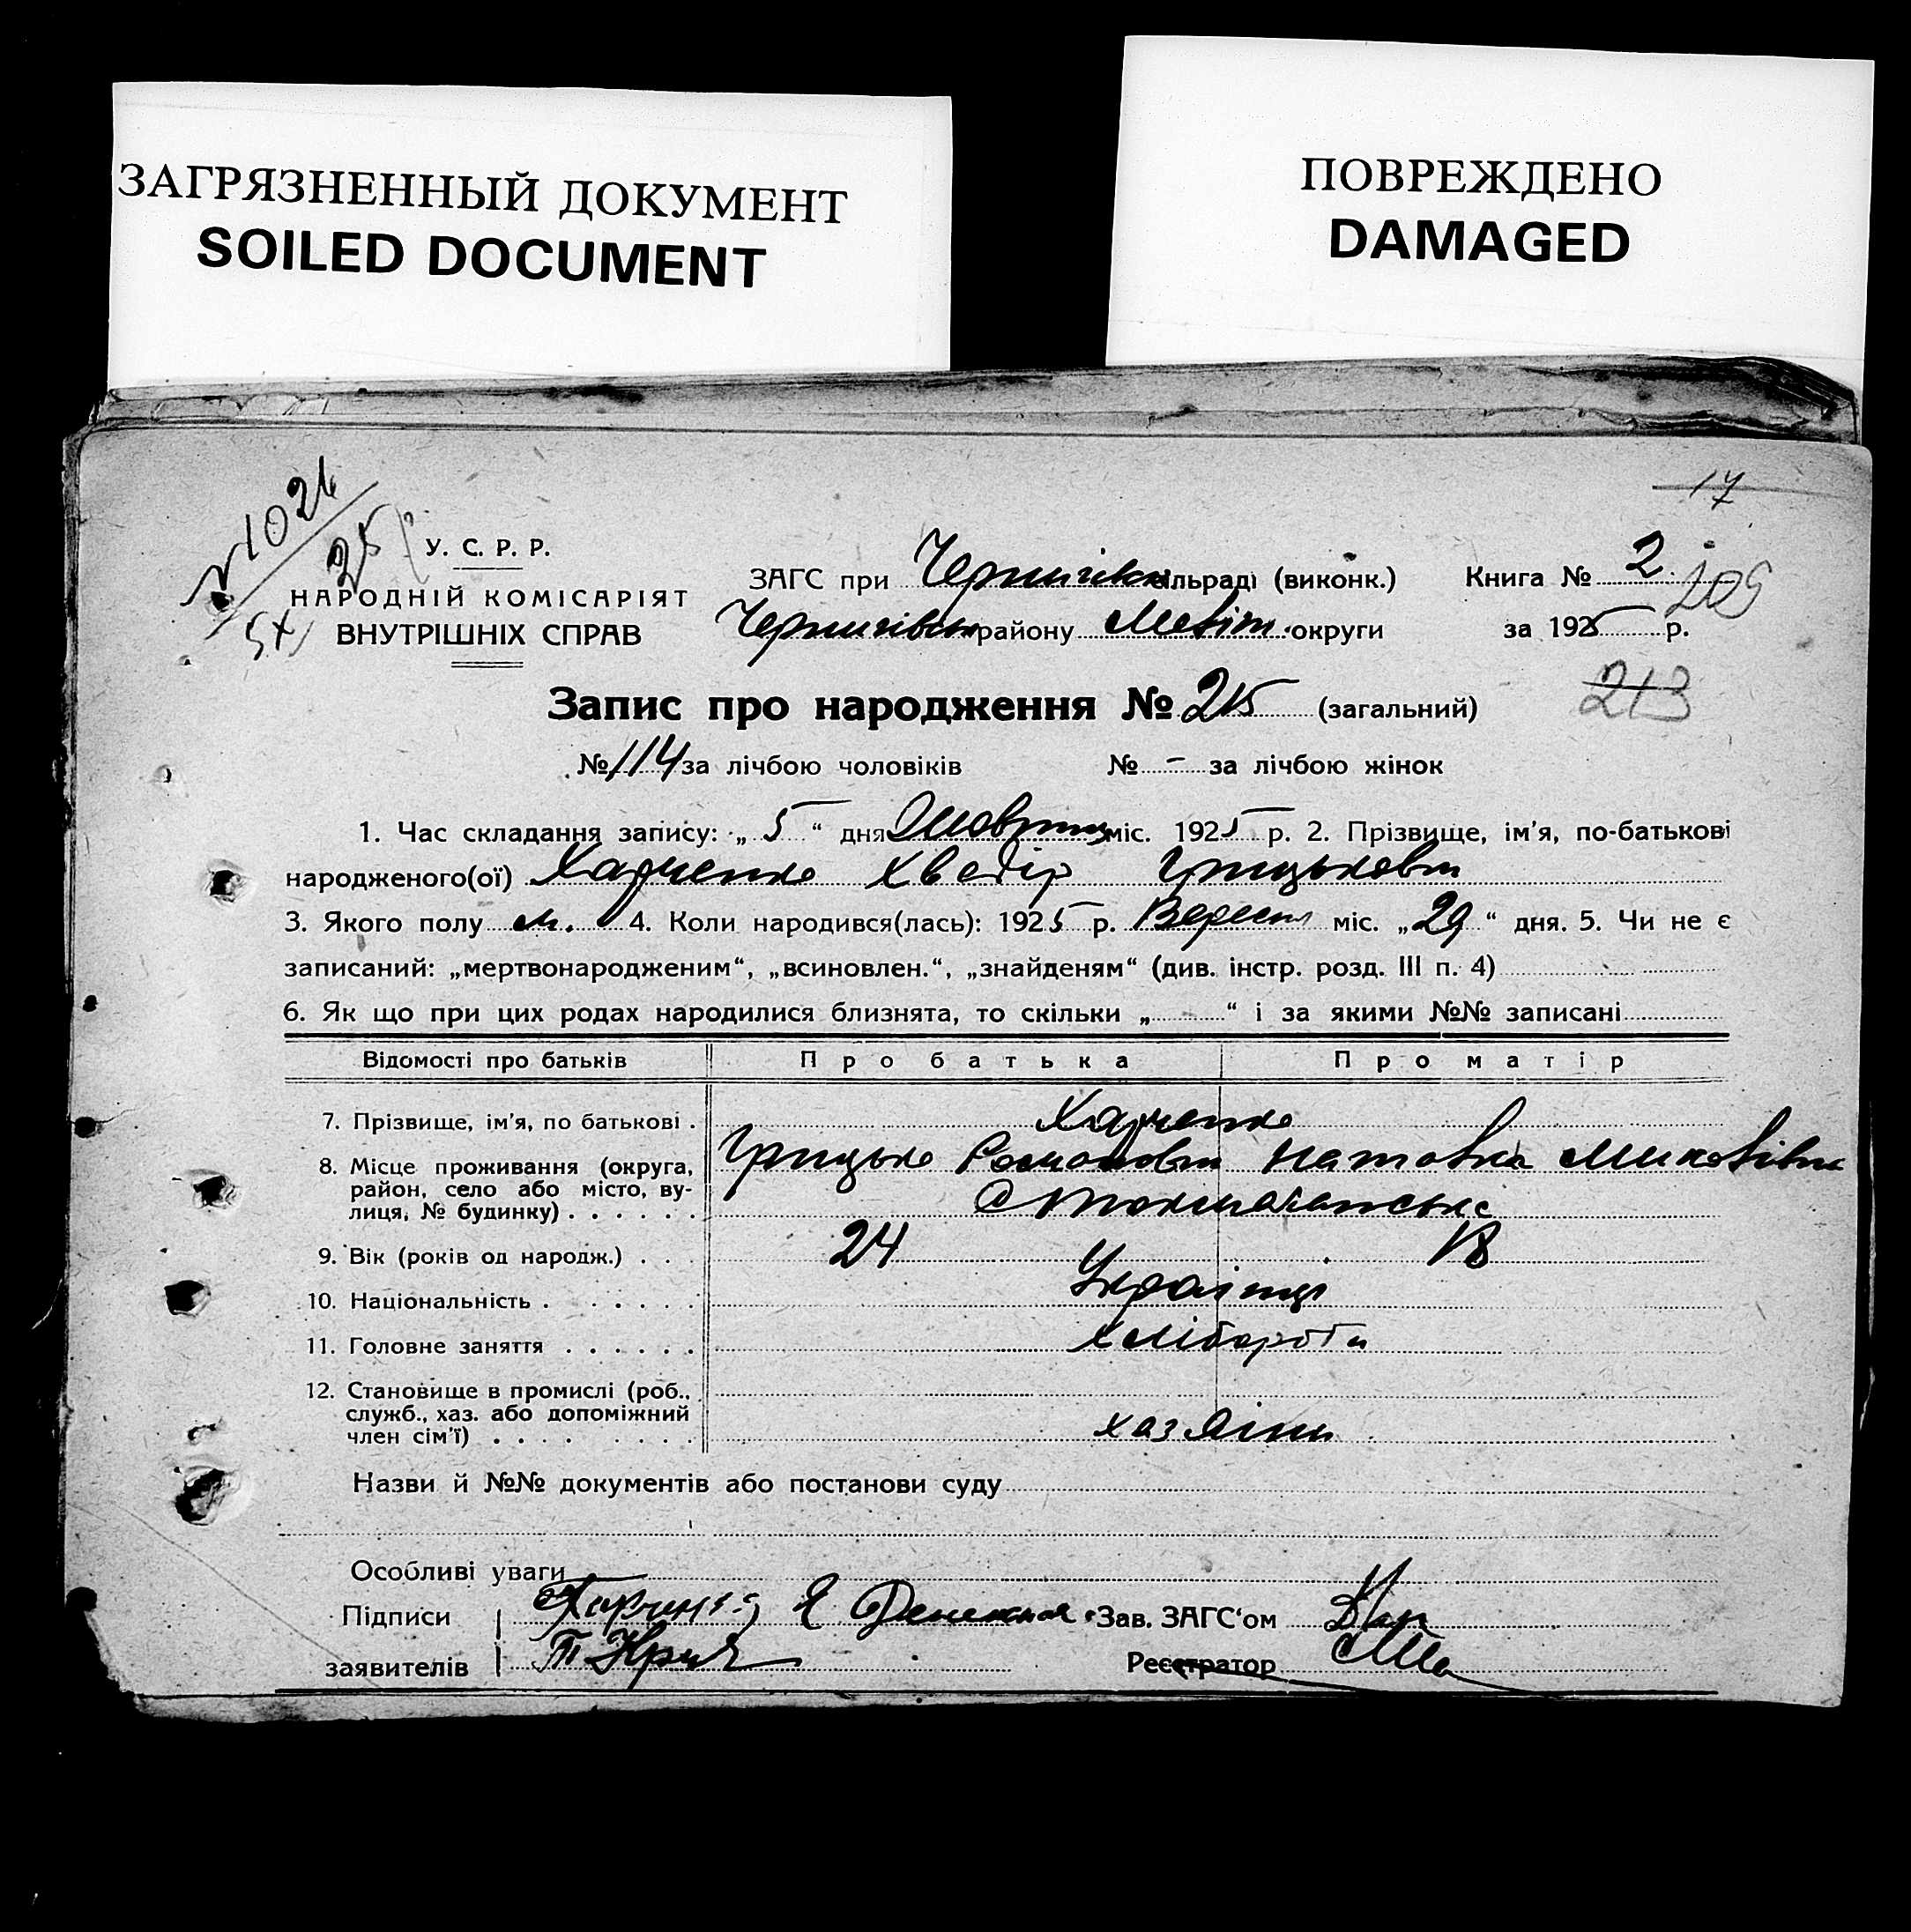 ЗАГРЯЗНЕННЫЙ ДОКУМЕНТ
SOILED DOCUMENT
ПОВРЕЖДЕНО
DAMAGED
17
№ 1024
25
5х
У. С. Р. Р.
НАРОДНІЙ КОМІСАРІЯТ
ВНУТРІШНІХ СПРАВ
ЗАГС при Чернигівск сільраді (виконк.)
Чернигівськ району Меліт. округи
Книга № 2
209
за 1925 р.
Запис про народження № 215 (загальний)
213
№ 114 за лічбою чоловіків № - за лічбою жінок
1. Час складання запису: „ 5 “ дня Жовтня міс. 1925 р. 2. Прізвище, ім'я, по-батькові
народженого(ої) Харченко Хведір Грицькович
3. Якого полу м. 4. Коли народився(лась): 1925 р. Вересня міс. „29“ дня. 5. Чи не є
записаний: „мертвонародженим“, „всиновлен.“, „знайденям“ (див. інстр. розд. III п. 4)
6. Як що при цих родах народилися близнята, то скільки „ “ і за якими №№ записані
Відомості про батьків Про батька Про матір
7. Прізвище, ім'я, по батькові . Харченко
Грицько Романович
8. Місце проживання (округа,
район, село або місто, ву-
лиця, № будинку) . . . . . .
9. Вік (років од народж.) . . . 24 18
10. Національність . . . . . . Українці
11. Головне заняття . . . . . . хлібороби
12. Становище в промислі (роб.,
служб., хаз. або допоміжний
член сім'ї) . . . . . . . . . хазяіни
Назви й №№ документів або постанови суду
Особливі уваги
Підписи
Зав. ЗАГС'ом
заявителів
Реєстратор